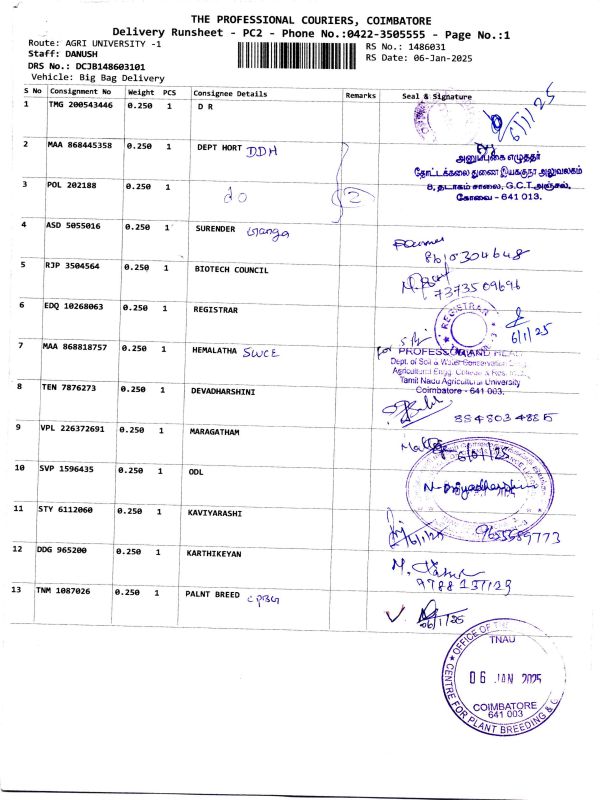 THE PROFESSIONAL COURIERS, COIMBATORE
Delivery Runsheet - PC2 - Phone No.:0422-3505555 - Page No.:1
Route: AGRI UNIVERSITY -1
RS No.: 1486031
Staff: DANUSH
RS Date: 06-Jan-2025
DRS No.: DCJB148603101
Vehicle: Big Bag Delivery
S No Consignment No Weight PCS Consignee Details Remarks Seal & Signature
1 TMG 200543446 0.250 1 D R 6/1/25
2 MAA 868445358 0.250 1 DEPT HORT DDH
அனுப்புகை எழுத்தர்
தோட்டக்கலை துணை இயக்குநர் அலுவலகம்
8, தடாகம் சாலை, G.C.T அஞ்சல்,
கோவை - 641 013.
3 POL 202188 0.250 1 do 2
4 ASD 5055016 0.250 1 SURENDER 8610304648
5 RJP 3504564 0.250 1 BIOTECH COUNCIL 7373509696
6 EDQ 10268063 0.250 1 REGISTRAR REGISTRAR 6/1/25
7 MAA 868818757 0.250 1 HEMALATHA SWCE for
PROFESSOR AND HEAD
Dept. of Soil & Water Conservation Engg.
Agricultural Engg. College & Res. Inst.
Tamil Nadu Agricultural University
Coimbatore - 641 003.
8 TEN 7876273 0.250 1 DEVADHARSHINI 8848034885
9 VPL 226372691 0.250 1 MARAGATHAM 6/01/25
10 SVP 1596435 0.250 1 ODL N. Priyadharshini
11 STY 6112060 0.250 1 KAVIYARASHI 6/1/25 9655689773
12 DDG 965200 0.250 1 KARTHIKEYAN 9788137129
13 TNM 1087026 0.250 1 PALNT BREED CPBG 06/1/25
OFFICE OF
TNAU
06 JAN 2025
COIMBATORE
641 003
CENTRE FOR PLANT BREEDING &